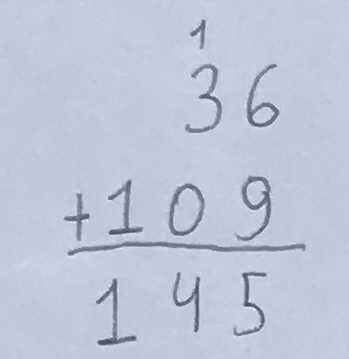 1
36
+109
145